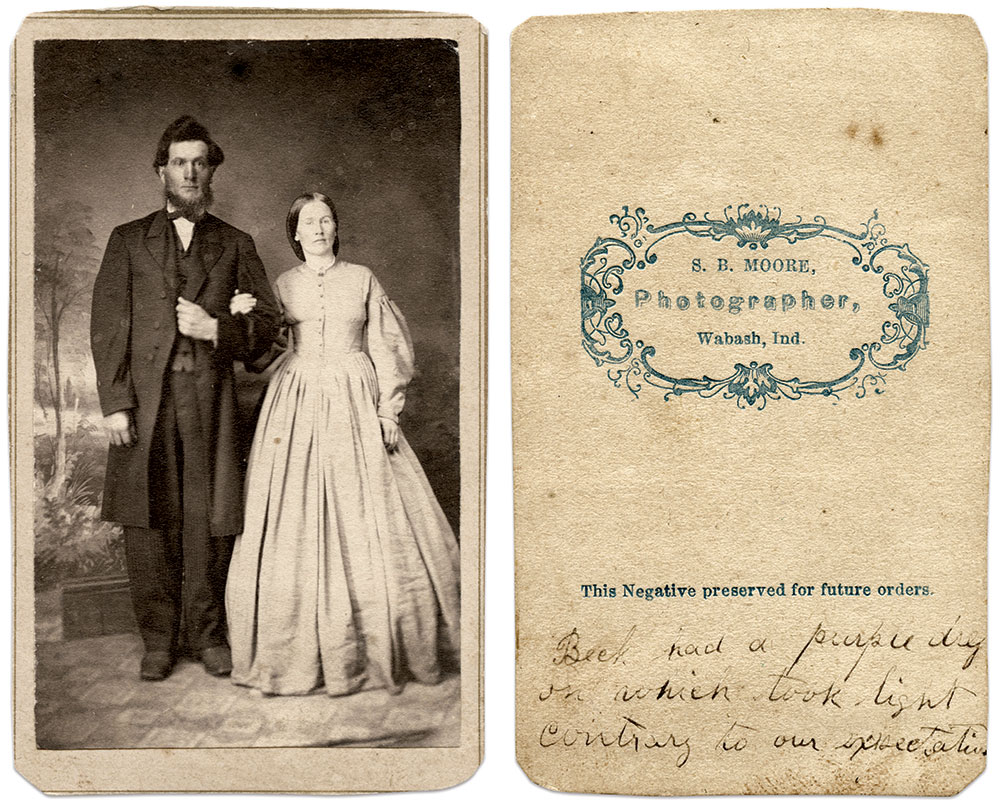 S. B. MOORE,
Photographer,
Wabash, Ind.
This Negative preserved for future orders.
Beck had a purple dry
on which took light
contrary to our expectation